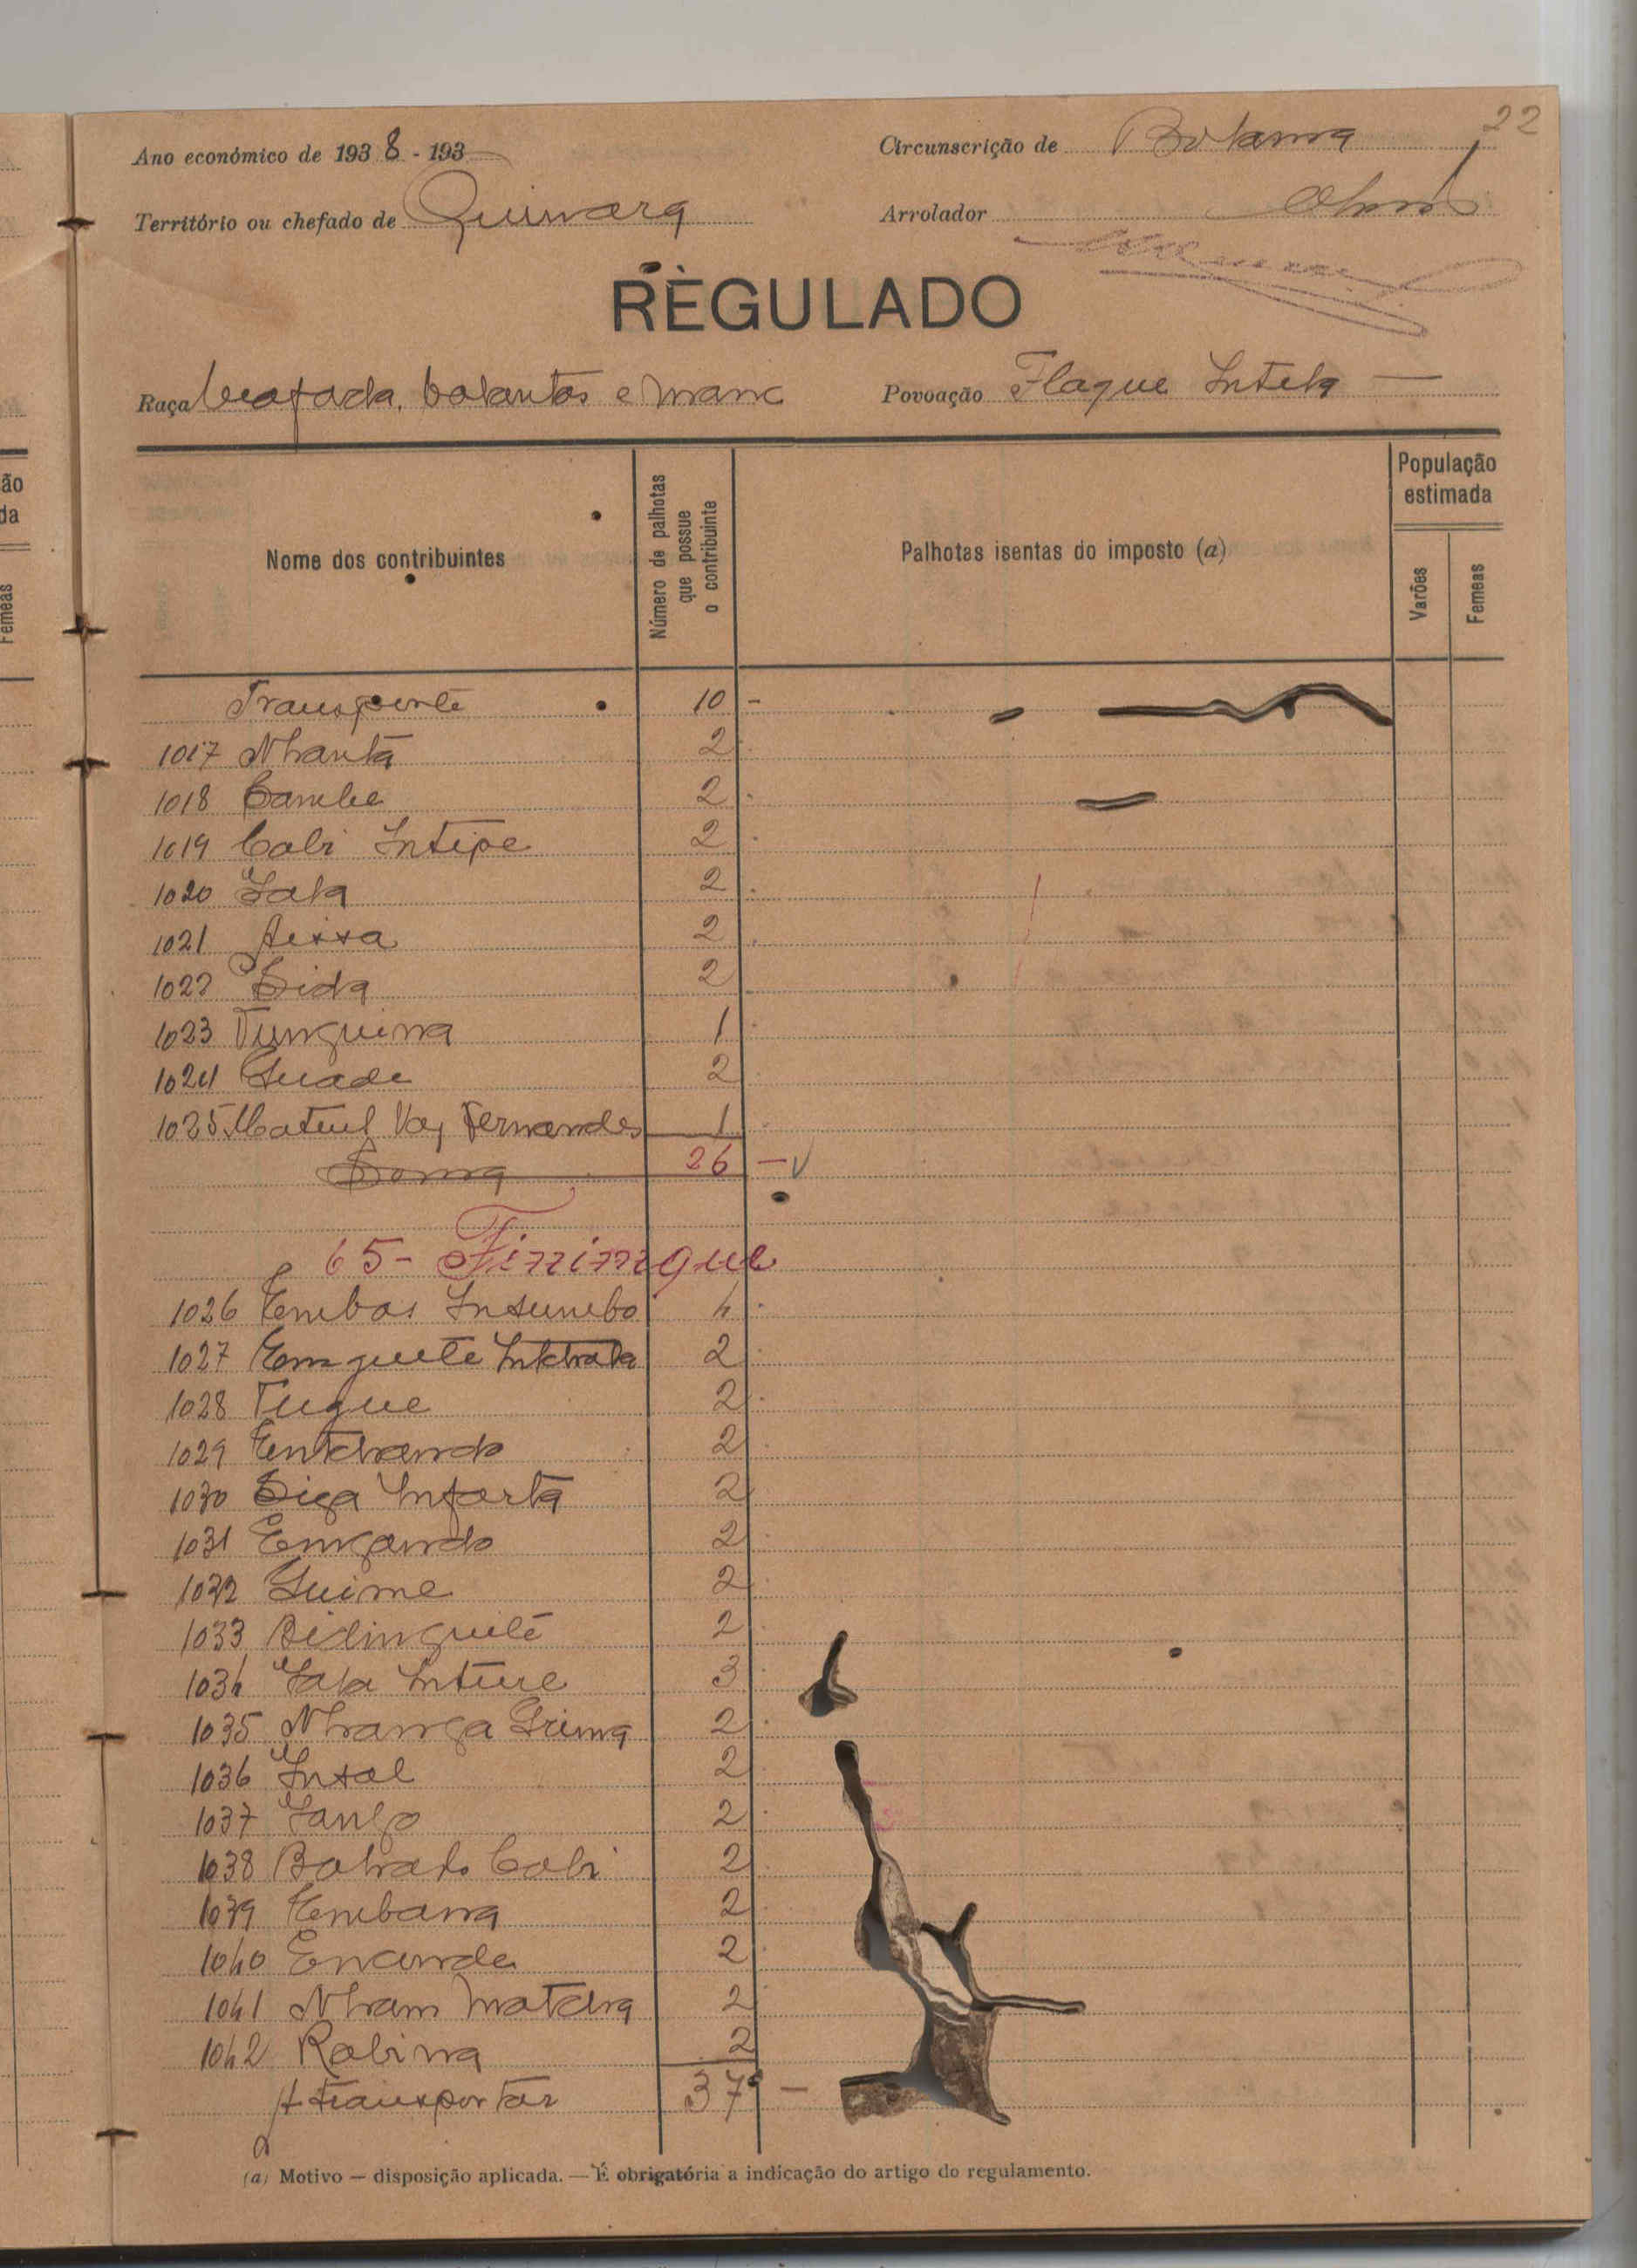 22
Ano económico de 1938 - 193
Circunscrição de Bolama
Território ou chefado de Quinara
Arrolador
REGULADO
Raça beafada, balantas e manc
Povoação Flaque Intela —
Nome dos contribuintes
Número de palhotas que possue o contribuinte
Palhotas isentas do imposto (a)
População estimada
Varões
Femeas
Transporte 10 -
1017 Nhanta 2
1018 Cambe 2
1019 Cabi Intipe 2
1020 Iala 2
1021 Aissa 2
1022 Sida 2
1023 Tunguina 1
1024 Quade 2
1025 Mateul Vaz Fernandes 1
Soma 26 - V
65 - Finingue
1026 Tembas Insumbo 4
1027 2
1028 Tugue 2
1029 Entchando 2
1030 Siga Infarta 2
1031 Engando 2
1032 Guime 2
1033 Bidinguilé 2
1034 Iala Inture 3
1035 Nhanga Grima 2
1036 Insal 2
1037 Iango 2
1038 Batrado Cabi 2
1039 Tembana 2
1040 Encunda 2
1041 Nham Matcha 2
1042 Rabina 2
A transportar 37 -
(a) Motivo — disposição aplicada. — É obrigatória a indicação do artigo do regulamento.
ão
da
Femeas